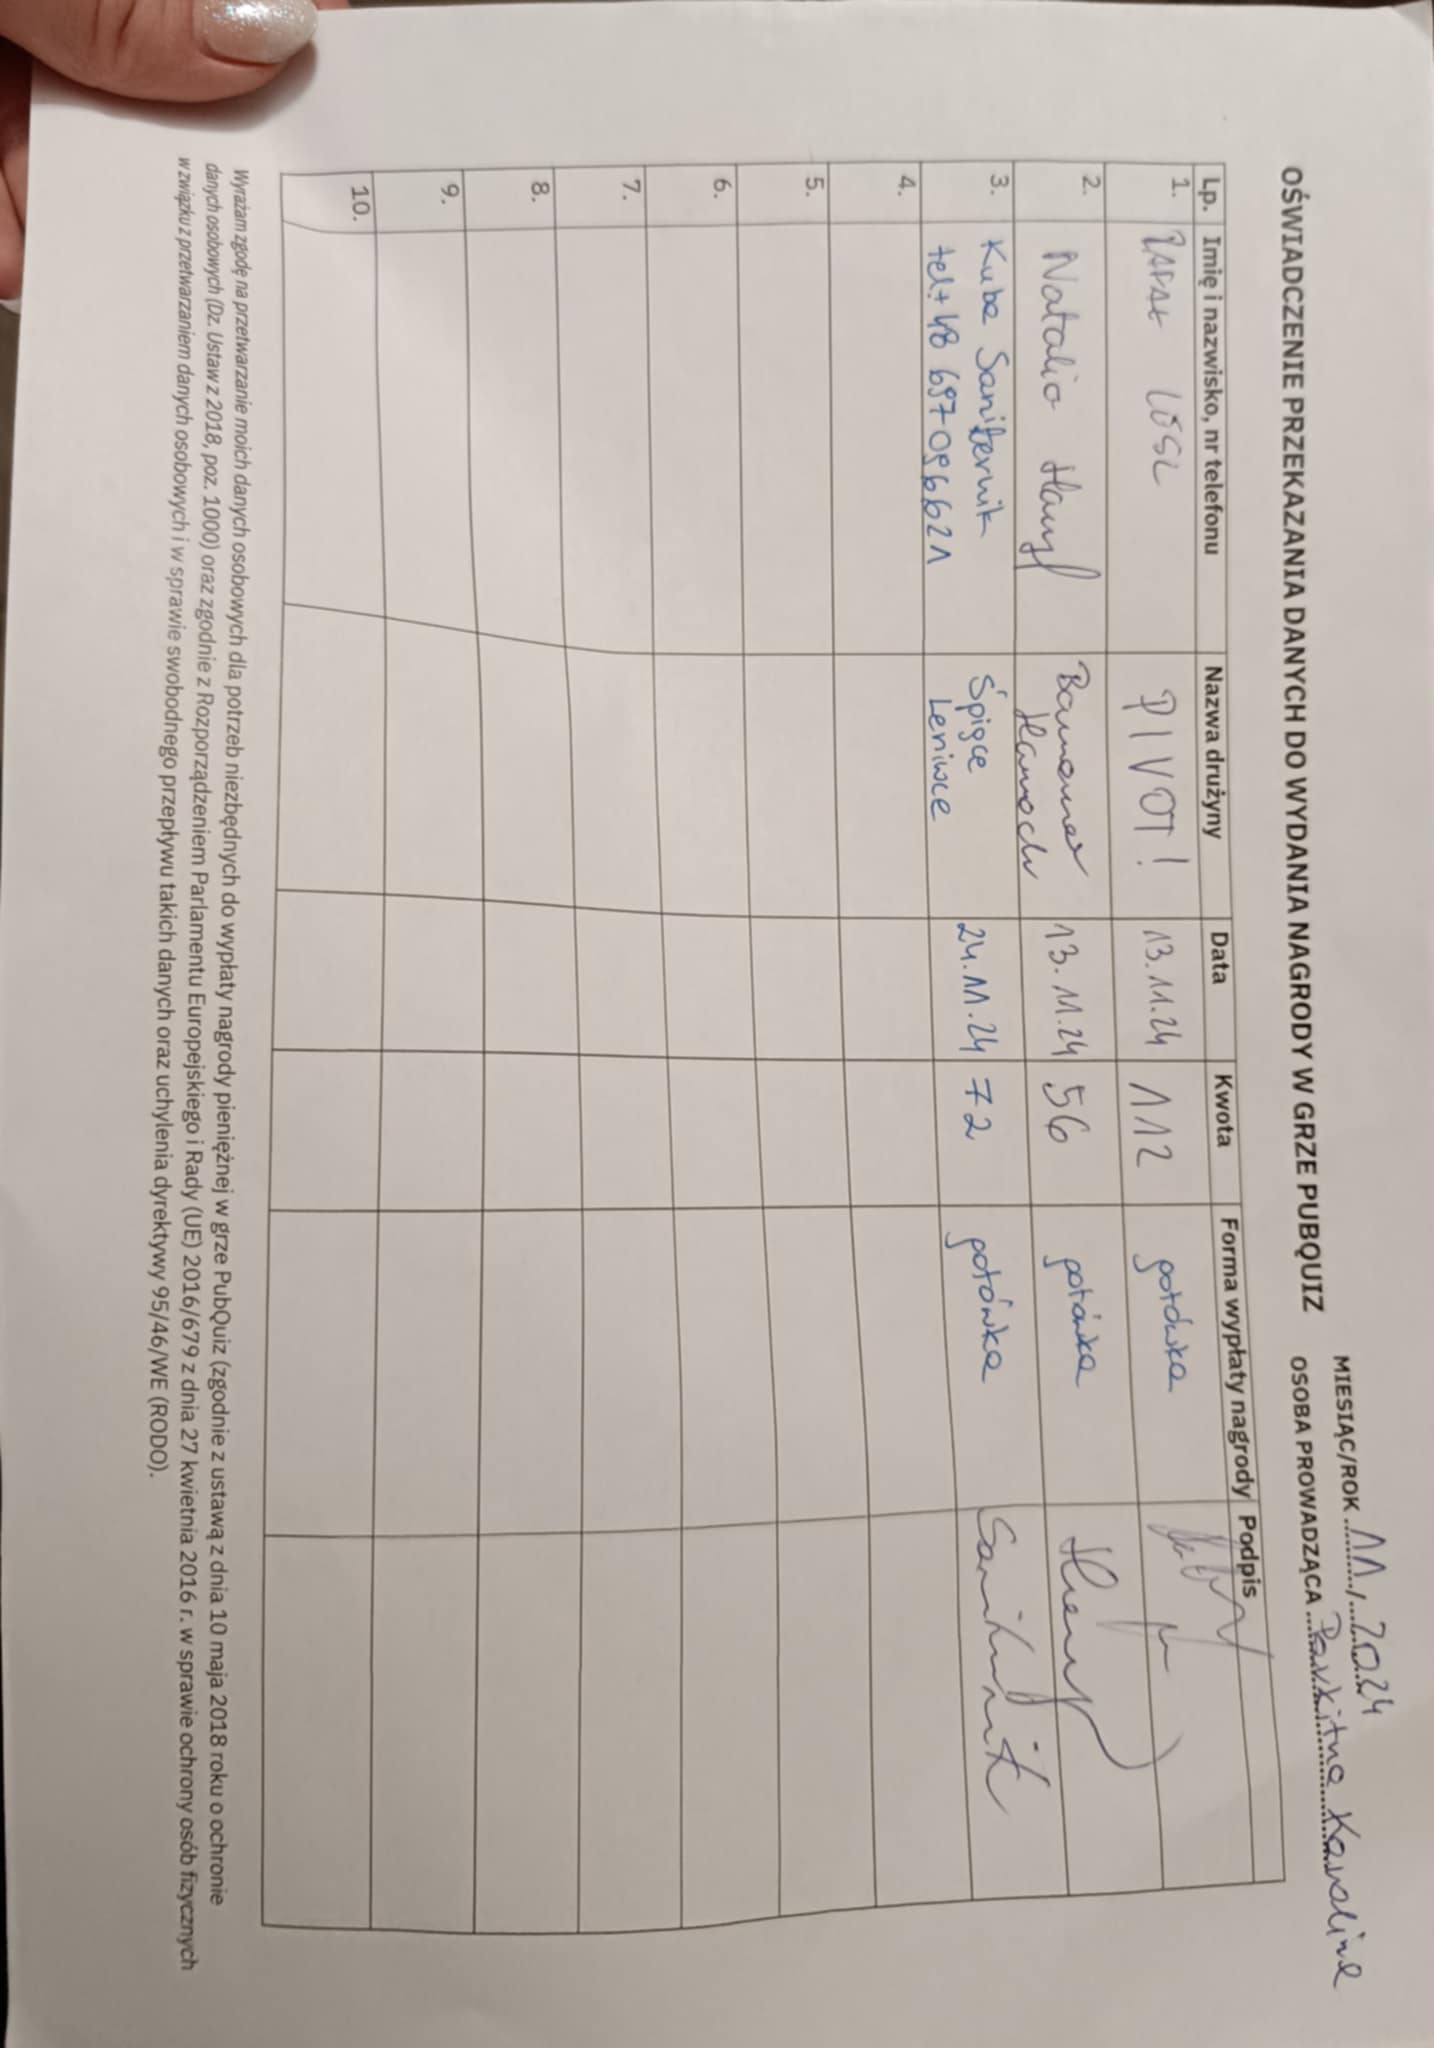 OŚWIADCZENIE PRZEKAZANIA DANYCH DO WYDANIA NAGRODY W GRZE PUBQUIZ
MIESIĄC/ROK 11 / 2024
OSOBA PROWADZĄCA Parkitna Karolina
Lp. Imię i nazwisko, nr telefonu Nazwa drużyny Data Kwota Forma wypłaty nagrody Podpis
1. RAFAŁ PIVOT! 13.11.24 112 gotówka
2. Natalia 13.11.24 56 gotówka
3. Kuba Śpiące 24.11.24 72 gotówka
tel +48 697096621 Leniwce
4.
5.
6.
7.
8.
9.
10.
Wyrażam zgodę na przetwarzanie moich danych osobowych dla potrzeb niezbędnych do wypłaty nagrody pieniężnej w grze PubQuiz (zgodnie z ustawą z dnia 10 maja 2018 roku o ochronie
danych osobowych (Dz. Ustaw z 2018, poz. 1000) oraz zgodnie z Rozporządzeniem Parlamentu Europejskiego i Rady (UE) 2016/679 z dnia 27 kwietnia 2016 r. w sprawie ochrony osób fizycznych
w związku z przetwarzaniem danych osobowych i w sprawie swobodnego przepływu takich danych oraz uchylenia dyrektywy 95/46/WE (RODO).